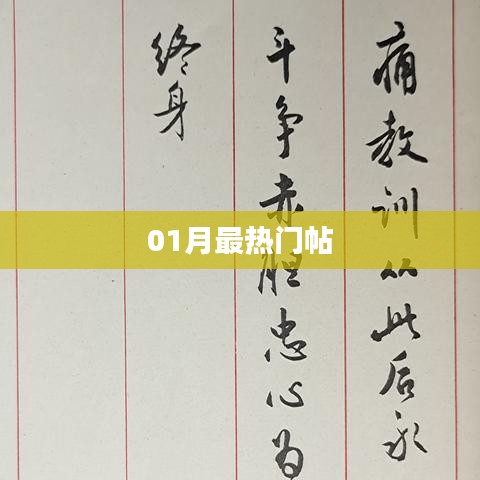 痛教训从此后永
斗争赤胆忠心为
终身
01月最热门帖